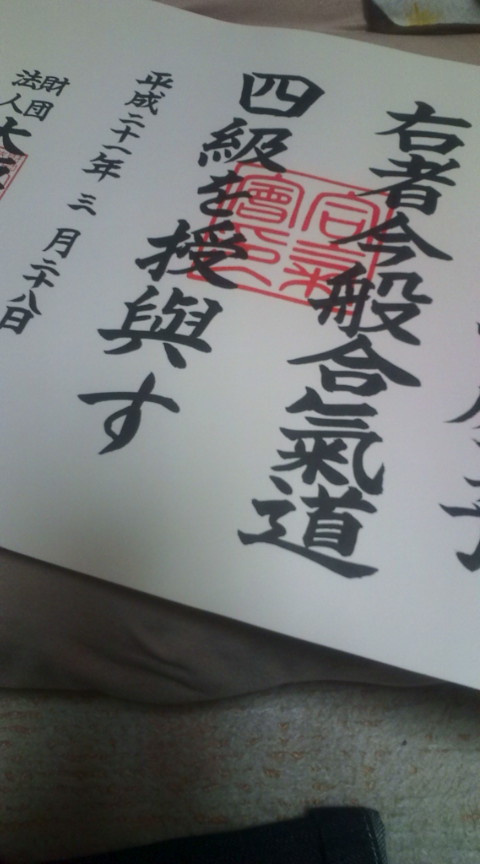 右者今般合氣道
四級を授與す
平成二十一年三月二十八日
財団
法人
合氣會印